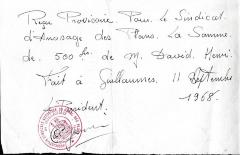 Reçu Provisoire. Pour. le Syndicat
d'Amorage des Plans. La Somme
de. 500 frs. de M. David. Henri
Fait à Guillaumes. 11 Septembre
1968.
Le Président: